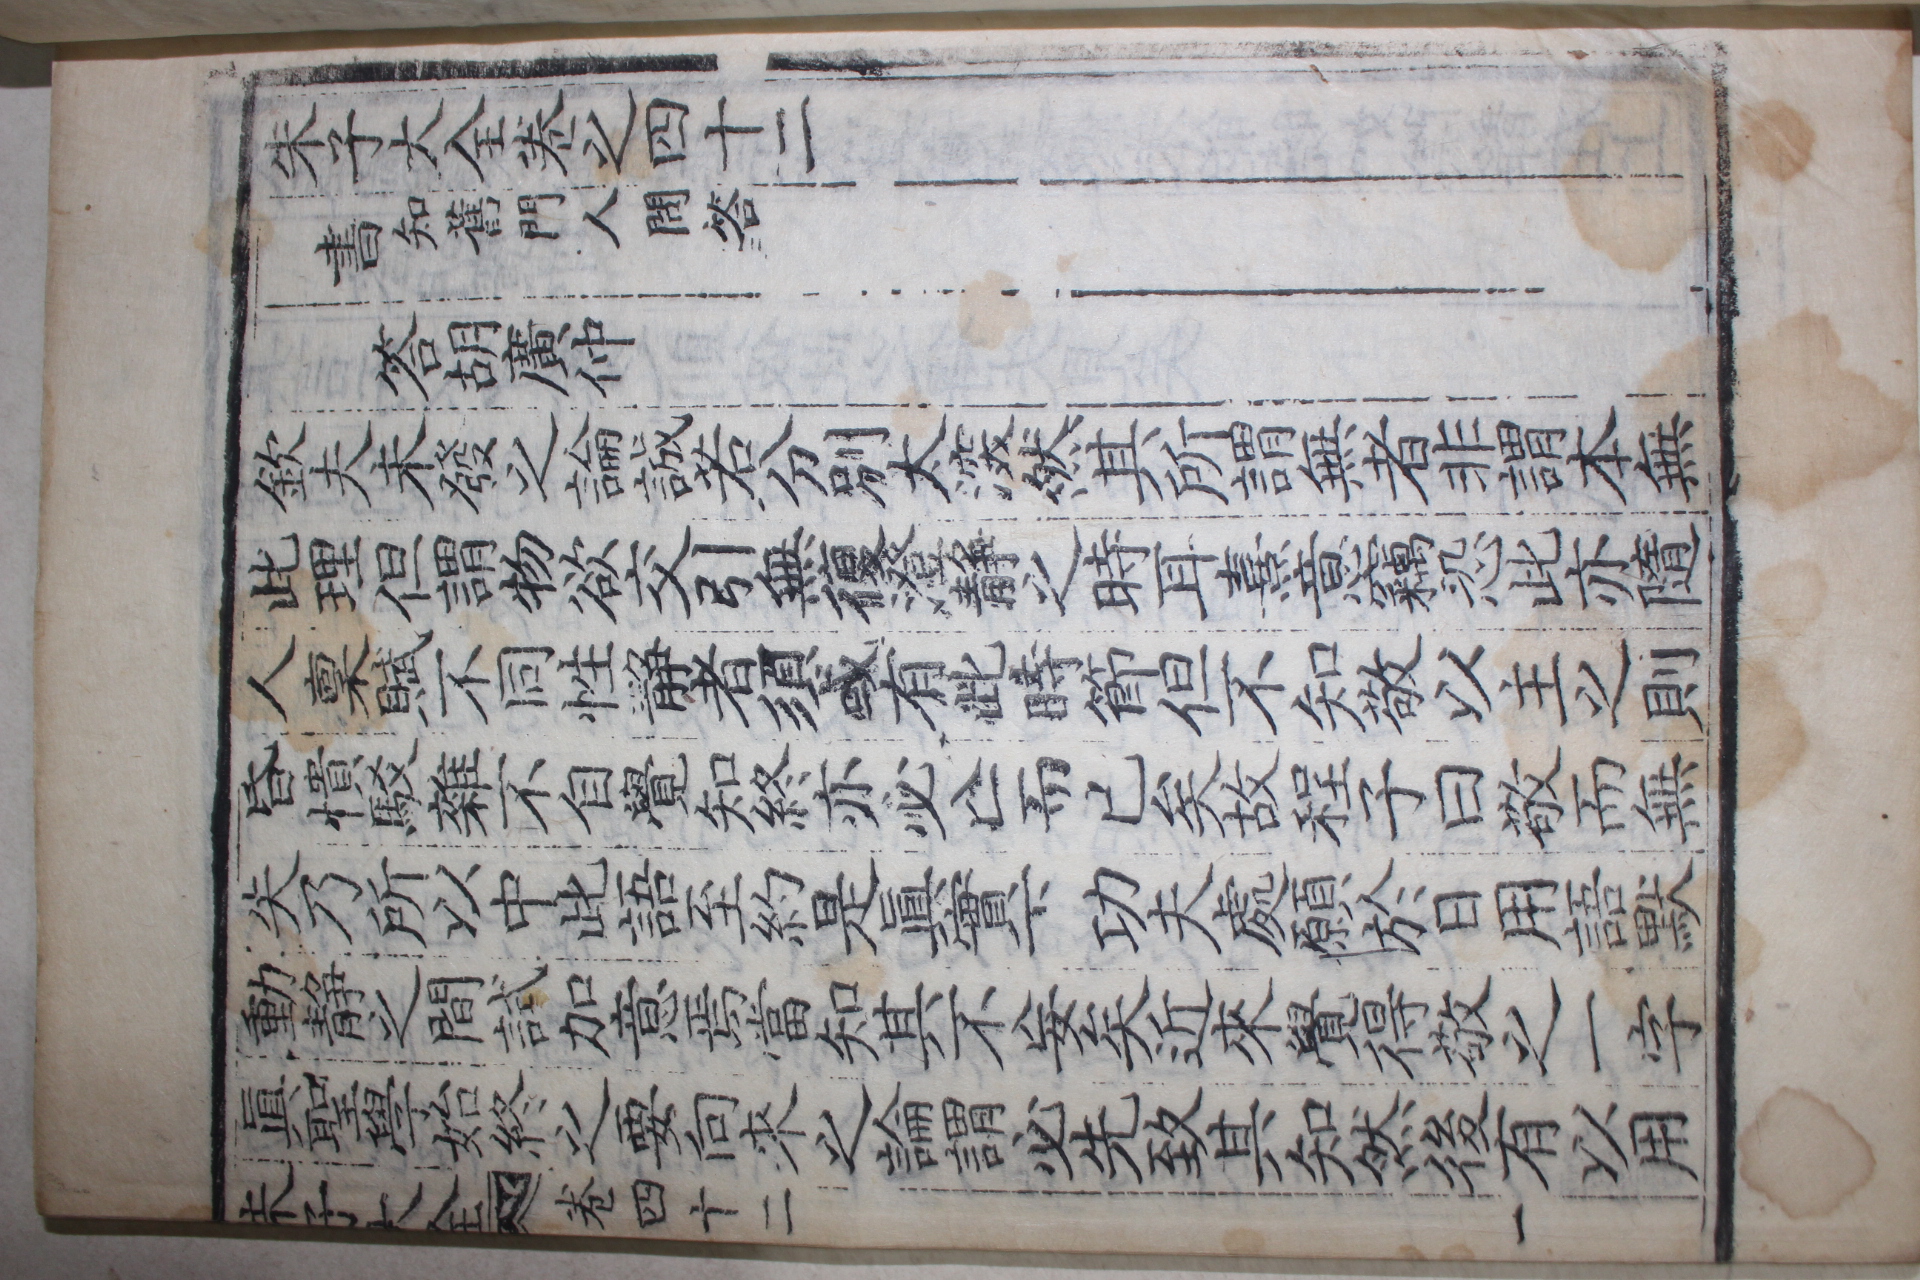 朱子大全卷之四十二
書知舊門人問答
答胡廣仲
欽夫未發之論誠若分別太深然其所謂無者非謂本無
此理但謂物欲交引無復澄靜之時耳熹意竊恐此亦隨
人稟賦不同性靜者須或有此時節但不知敬以主之則
昏憒駁雜不自覺知終亦必亡而已矣故程子曰敬而無
失乃所以中此語至約是眞實下功夫處願於日用語默
動靜之間試加意焉當知其不妄矣近來覺得敬之一字
眞聖學始終之要向來之論謂必先致其知然後有以用
朱子大全 卷四十二 一